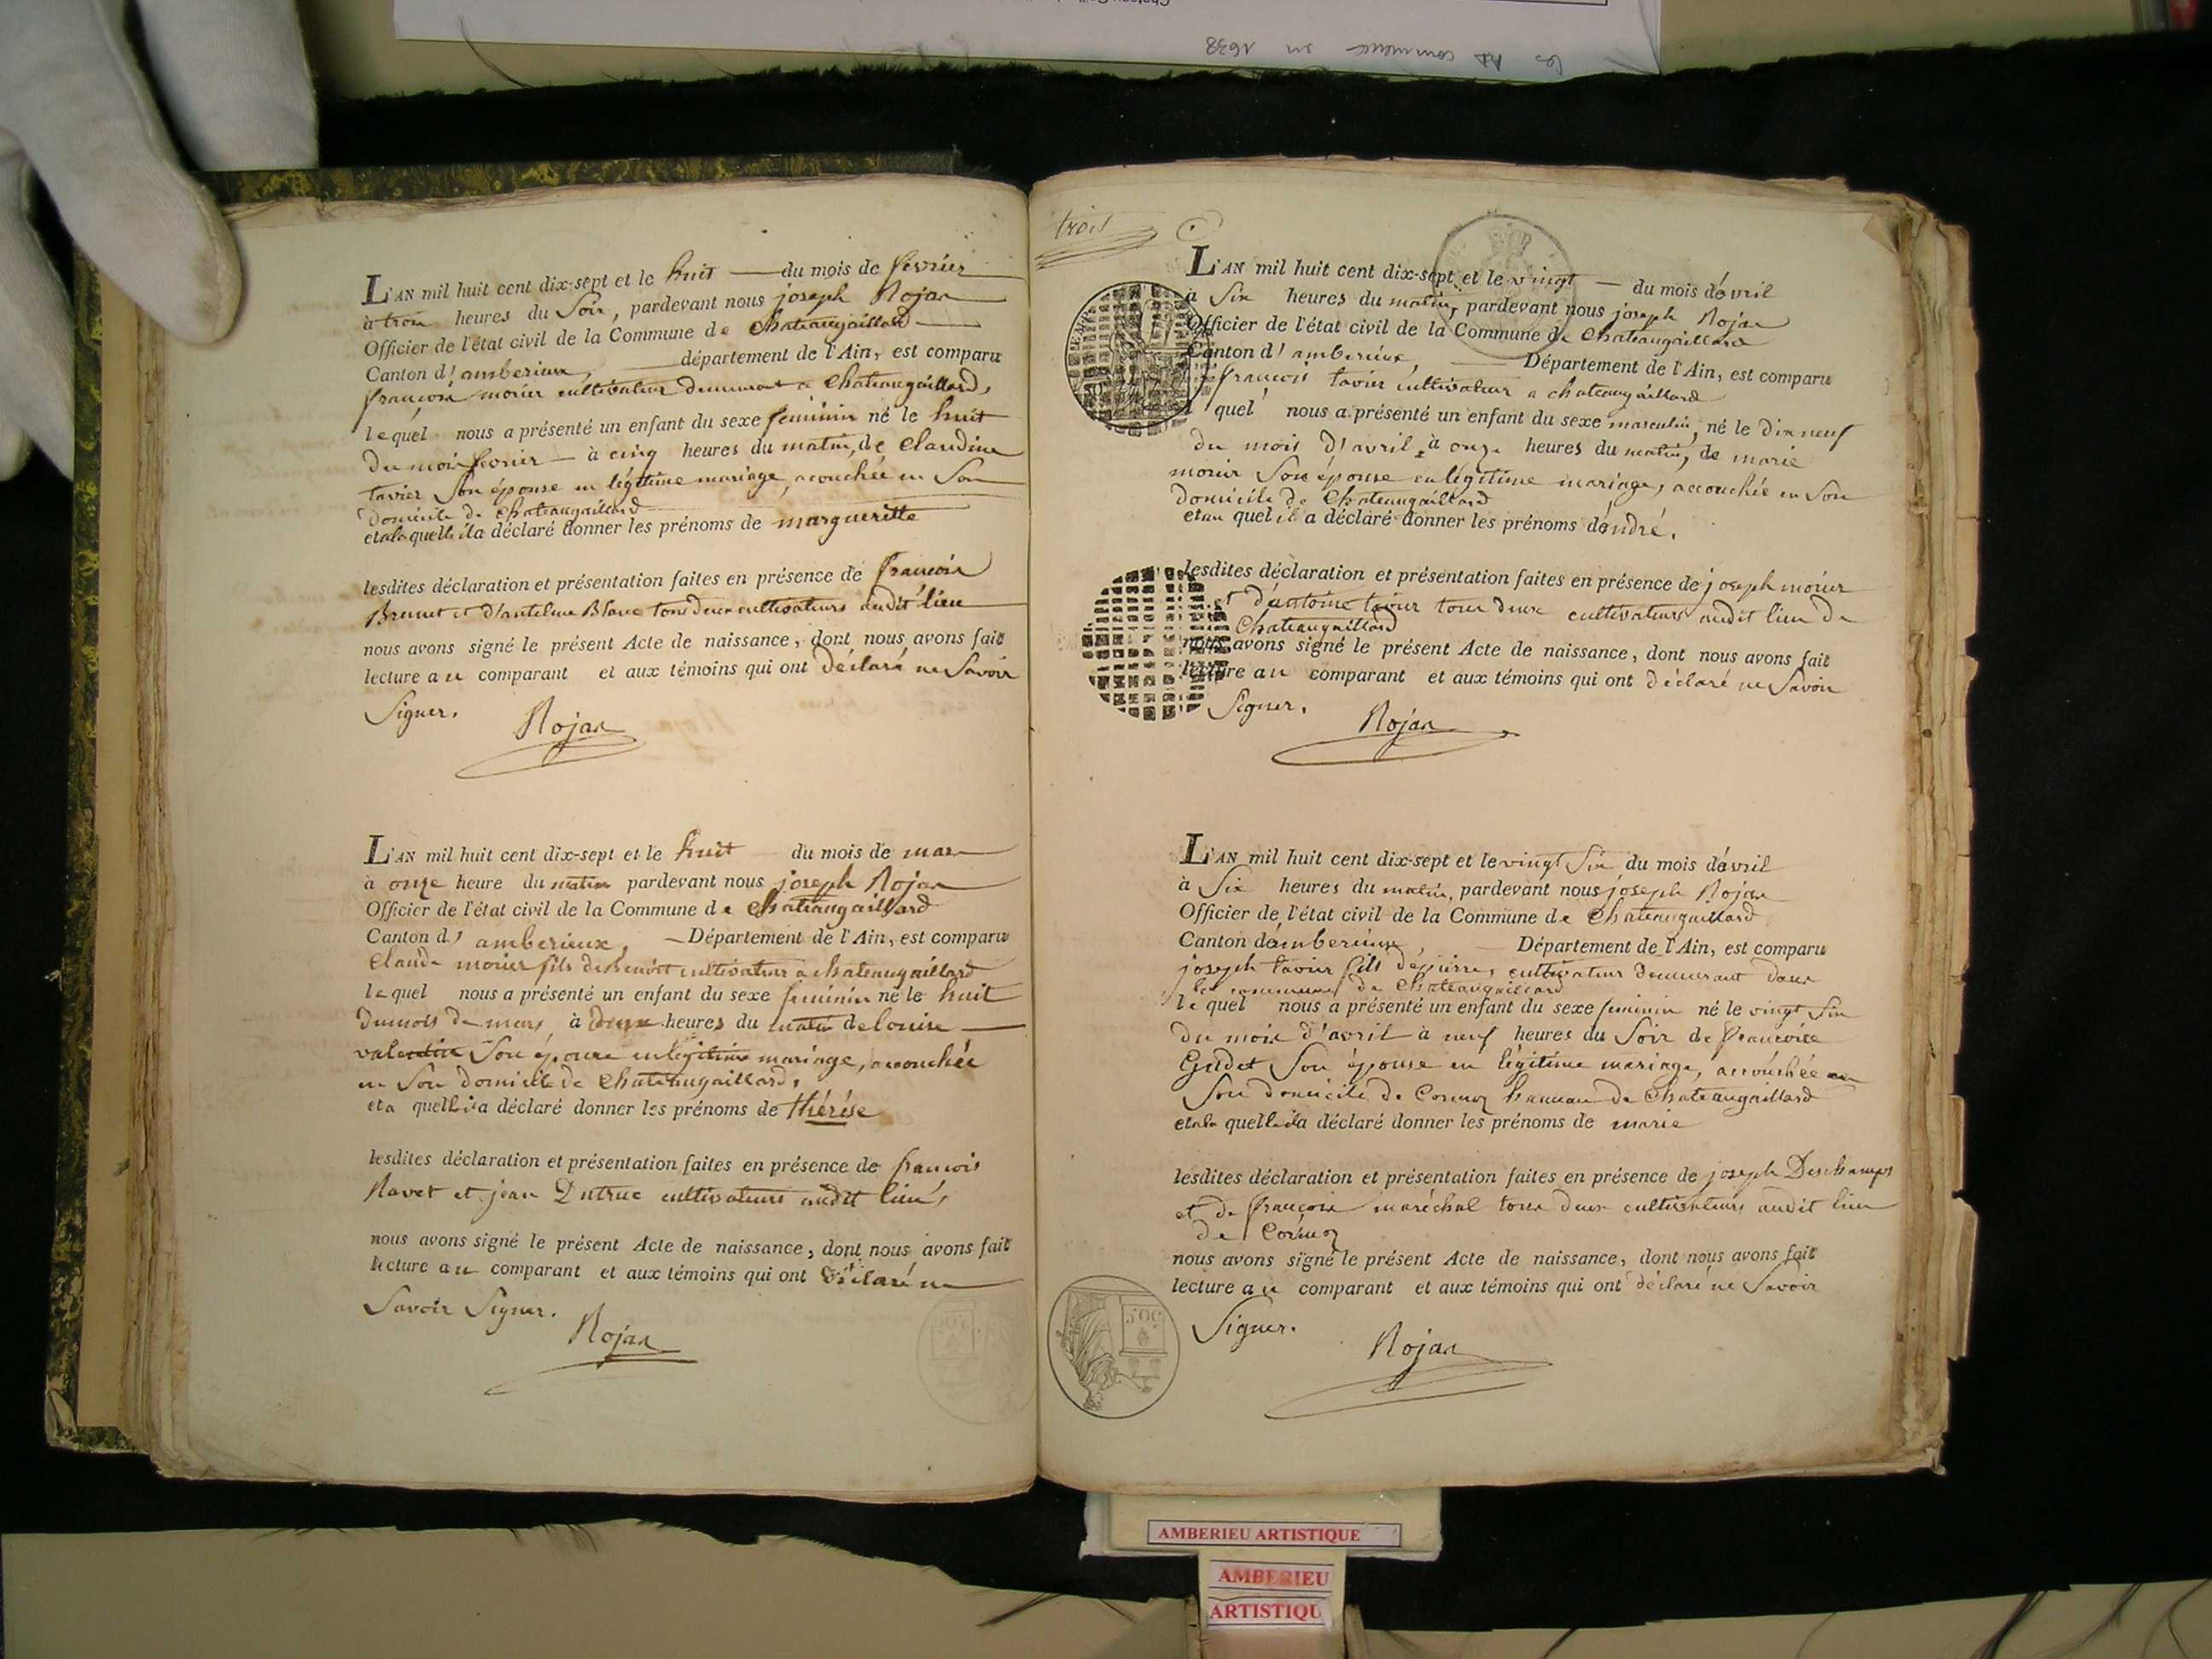 les commence en 1638
L'AN mil huit cent dix-sept et le huit du mois de fevrier
à trois heures du Soir, pardevant nous joseph Rojar
Officier de l'état civil de la Commune de Chateaugaillard
Canton d'amberieux, département de l'Ain, est comparu
francois morier cultivateur demeurant a Chateaugaillard,
lequel nous a présenté un enfant du sexe feminin né le huit
du mois fevrier à cinq heures du matin, de Claudine
tavier Son épouse en légitime mariage, acouchée en Son
Domicile de Chateaugaillard
et a laquelle il a déclaré donner les prénoms de margueritte
lesdites déclaration et présentation faites en présence de francois
Brunet et d'antelme Blanc tous deux cultivateurs audit lieu
nous avons signé le présent Acte de naissance, dont nous avons fait
lecture au comparant et aux témoins qui ont déclaré ne Savoir
Signer.
Rojar
L'AN mil huit cent dix-sept et le huit du mois de mars
à onze heure du matin pardevant nous joseph Rojar
Officier de l'état civil de la Commune de Chateaugaillard
Canton d'amberieux, Département de l'Ain, est comparu
Claude morier fils de benoit cultivateur a chateaugaillard
le quel nous a présenté un enfant du sexe feminin né le huit
du mois de mars à deux heures du matin de louise
valentin Son épouse en legitime mariage, acouchée
en Son domicile de Chateaugaillard,
et a quelle il a déclaré donner les prénoms de thérèse
lesdites déclaration et présentation faites en présence de francois
Ravet et jean Dutruc cultivateurs audit lieu,
nous avons signé le présent Acte de naissance, dont nous avons fait
lecture au comparant et aux témoins qui ont déclaré ne
Savoir Signer.
Rojar
trois
L'AN mil huit cent dix-sept et le vingt du mois d'avril
à Six heures du matin, pardevant nous joseph Rojar
Officier de l'état civil de la Commune de Chateaugaillard
Canton d'amberieux, Département de l'Ain, est comparu
francois tavier cultivateur a chateaugaillard
le quel nous a présenté un enfant du sexe masculin, né le dixneuf
du mois d'avril à onze heures du matin, de marie
morier Son épouse en légitime mariage, accouchée en Son
domicile de Chateaugaillard
et au quel il a déclaré donner les prénoms d'andré.
lesdites déclaration et présentation faites en présence de joseph morier
et d'antoine tavier tous deux cultivateurs audit lieu de
Chateaugaillard
nous avons signé le présent Acte de naissance, dont nous avons fait
lecture au comparant et aux témoins qui ont déclaré ne Savoir
Signer.
Rojar
L'AN mil huit cent dix-sept et le vingt Six du mois d'avril
à Six heures du matin, pardevant nous joseph Rojar
Officier de l'état civil de la Commune de Chateaugaillard
Canton d'amberieux, Département de l'Ain, est comparu
joseph tavier fils de pierre, cultivateur demeurant dans
les communes de Chateaugaillard
le quel nous a présenté un enfant du sexe feminin né le vingt Six
du mois d'avril à neuf heures du Soir de francoise
Gudet Son épouse en légitime mariage, accouchée en
Son domicile de Cormoz hameau de Chateaugaillard
et a la quelle il a déclaré donner les prénoms de marie
lesdites déclaration et présentation faites en présence de joseph Deschamps
et de francois maréchal tous deux cultivateurs audit lieu
de Cormoz
nous avons signé le présent Acte de naissance, dont nous avons fait
lecture au comparant et aux témoins qui ont déclaré ne Savoir
Signer.
Rojar
AMBERIEU ARTISTIQUE
AMBERIEU
ARTISTIQU